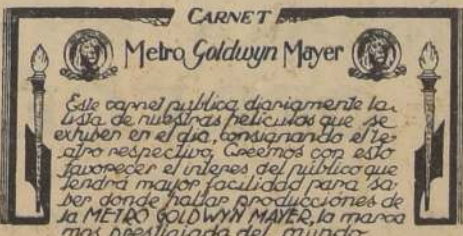 CARNET
Metro Goldwyn Mayer
Este carnet publica diariamente la
lista de nuestras peliculas que se
exhiben en el dia, consignando el te-
atro respectivo. Creemos con esto
favorecer el interes del publico que
tendrá mayor facilidad para sa-
ber donde hallar producciones de
la METRO GOLDWYN MAYER, la marca
mas prestigiada del mundo